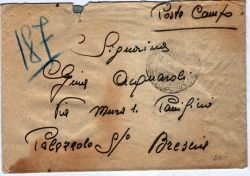 Posta Campo
187
Signorina
Gina Acquaroli
Via Mura S. Pancrazio
Palazzolo S/O
Brescia